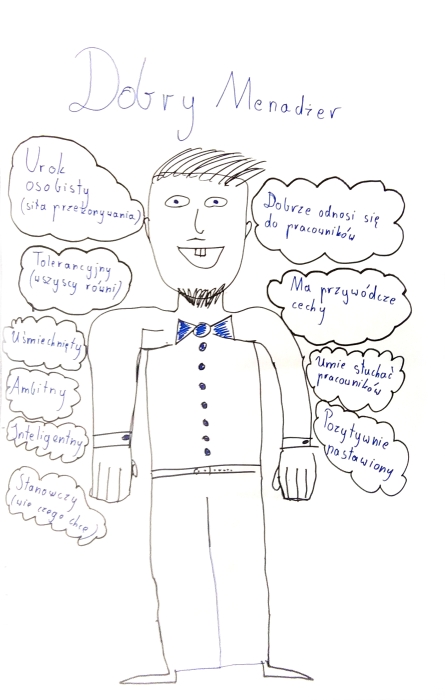 Dobry Menadżer
Urok
osobisty
(siła przekonywania)
Tolerancyjny
(wszyscy równi)
Uśmiechnięty
Ambitny
Inteligentny
Stanowczy
(wie czego chce)
Dobrze odnosi się
do pracowników
Ma przywódcze
cechy
Umie słuchać
pracowników
Pozytywnie
nastawiony